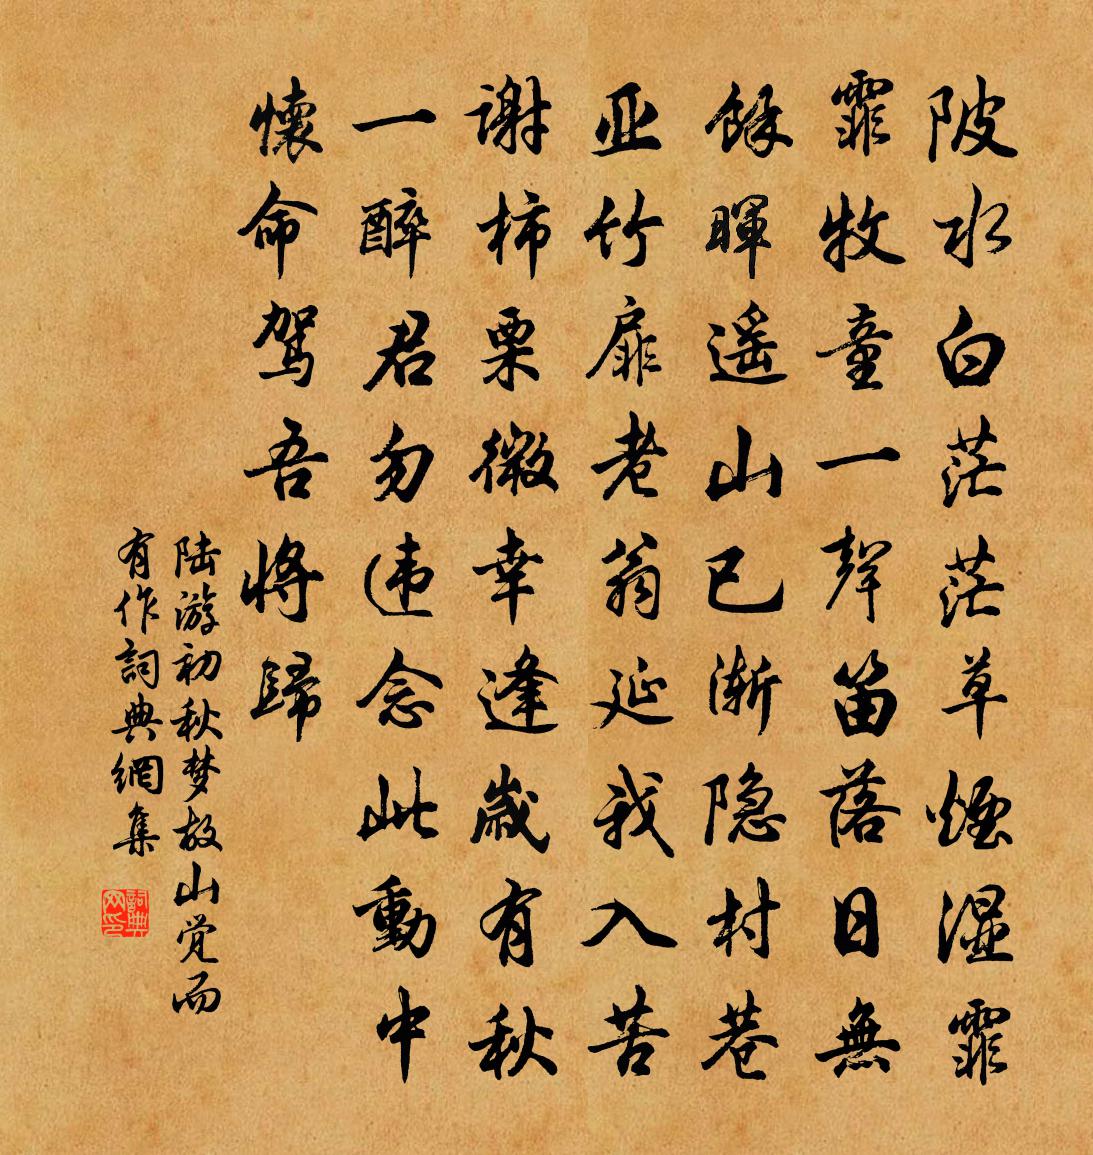 陂水白茫茫草煙湿霏
霏牧童一聲笛落日無
餘暉遥山已渐隐村巷
亚竹扉老翁延我入苦
谢柿栗微幸逢歲有秋
一醉君勿违念此動中
懷命驾吾将歸
陆游初秋梦故山觉而
有作詞典網集
詞典
网印